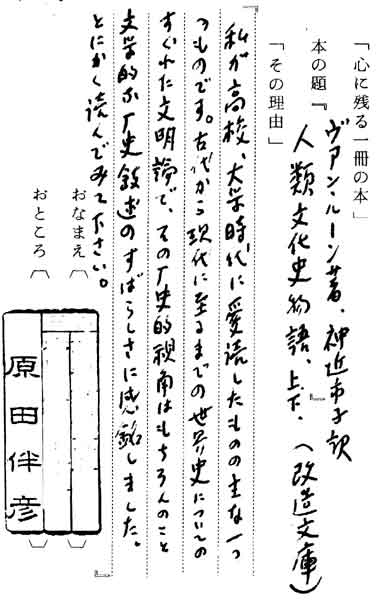 「心に残る一冊の本」
ヴァン・ルーン著、神近市子訳
本の題『人類文化史物語、上、下、』(改造文庫)
「その理由」
『私が高校、大学時代に愛読したものの主な一
つものです。古代から現代に至るまでの世界史についての
すぐれた文明論で、その厂史的視角はもちろんのこと
文学的な厂史叙述のすばらしさに感銘しました。
とにかく読んでみて下さい。』
おなまえ
おところ
原田伴彦